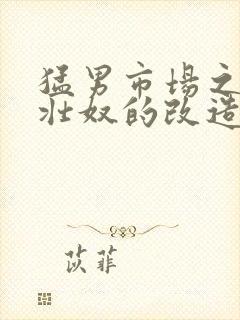 猛男市場之
壯奴的改造
苡菲